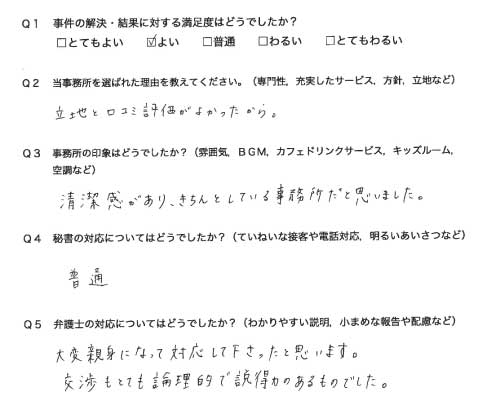 Q1 事件の解決・結果に対する満足度はどうでしたか?
□とてもよい ☑よい □普通 □わるい □とてもわるい
Q2 当事務所を選ばれた理由を教えてください。(専門性,充実したサービス,方針,立地など)
立地と口コミ評価がよかったから。
Q3 事務所の印象はどうでしたか?(雰囲気,BGM,カフェドリンクサービス,キッズルーム,
空調など)
清潔感があり、きちんとしている事務所だと思いました。
Q4 秘書の対応についてはどうでしたか?(ていねいな接客や電話対応,明るいあいさつなど)
普通
Q5 弁護士の対応についてはどうでしたか?(わかりやすい説明,小まめな報告や配慮など)
大変親身になって対応して下さったと思います。
交渉もとても論理的で説得力のあるものでした。